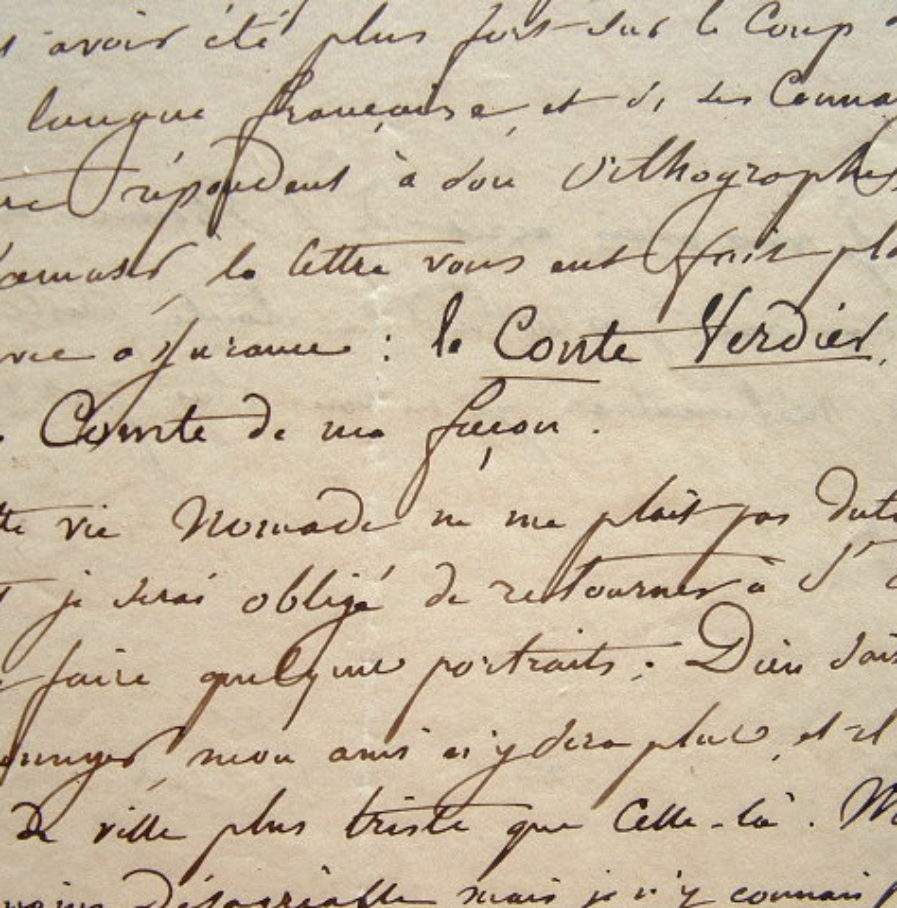 avoir été plus fort sur le Coup
langue française, et si ses Conna
répondent à son Orthographe
la lettre vous eut fait pla
: le Comte Verdier,
Comte de ma façon.
tte vie Nomade ne me plait pas
je serai obligé de retourner à S^t
faire quelque portraits. Dieu sait
mon ami n'y sera plus, et il
de ville plus triste que Celle-là. M
moins Désagréable mais je n'y connais